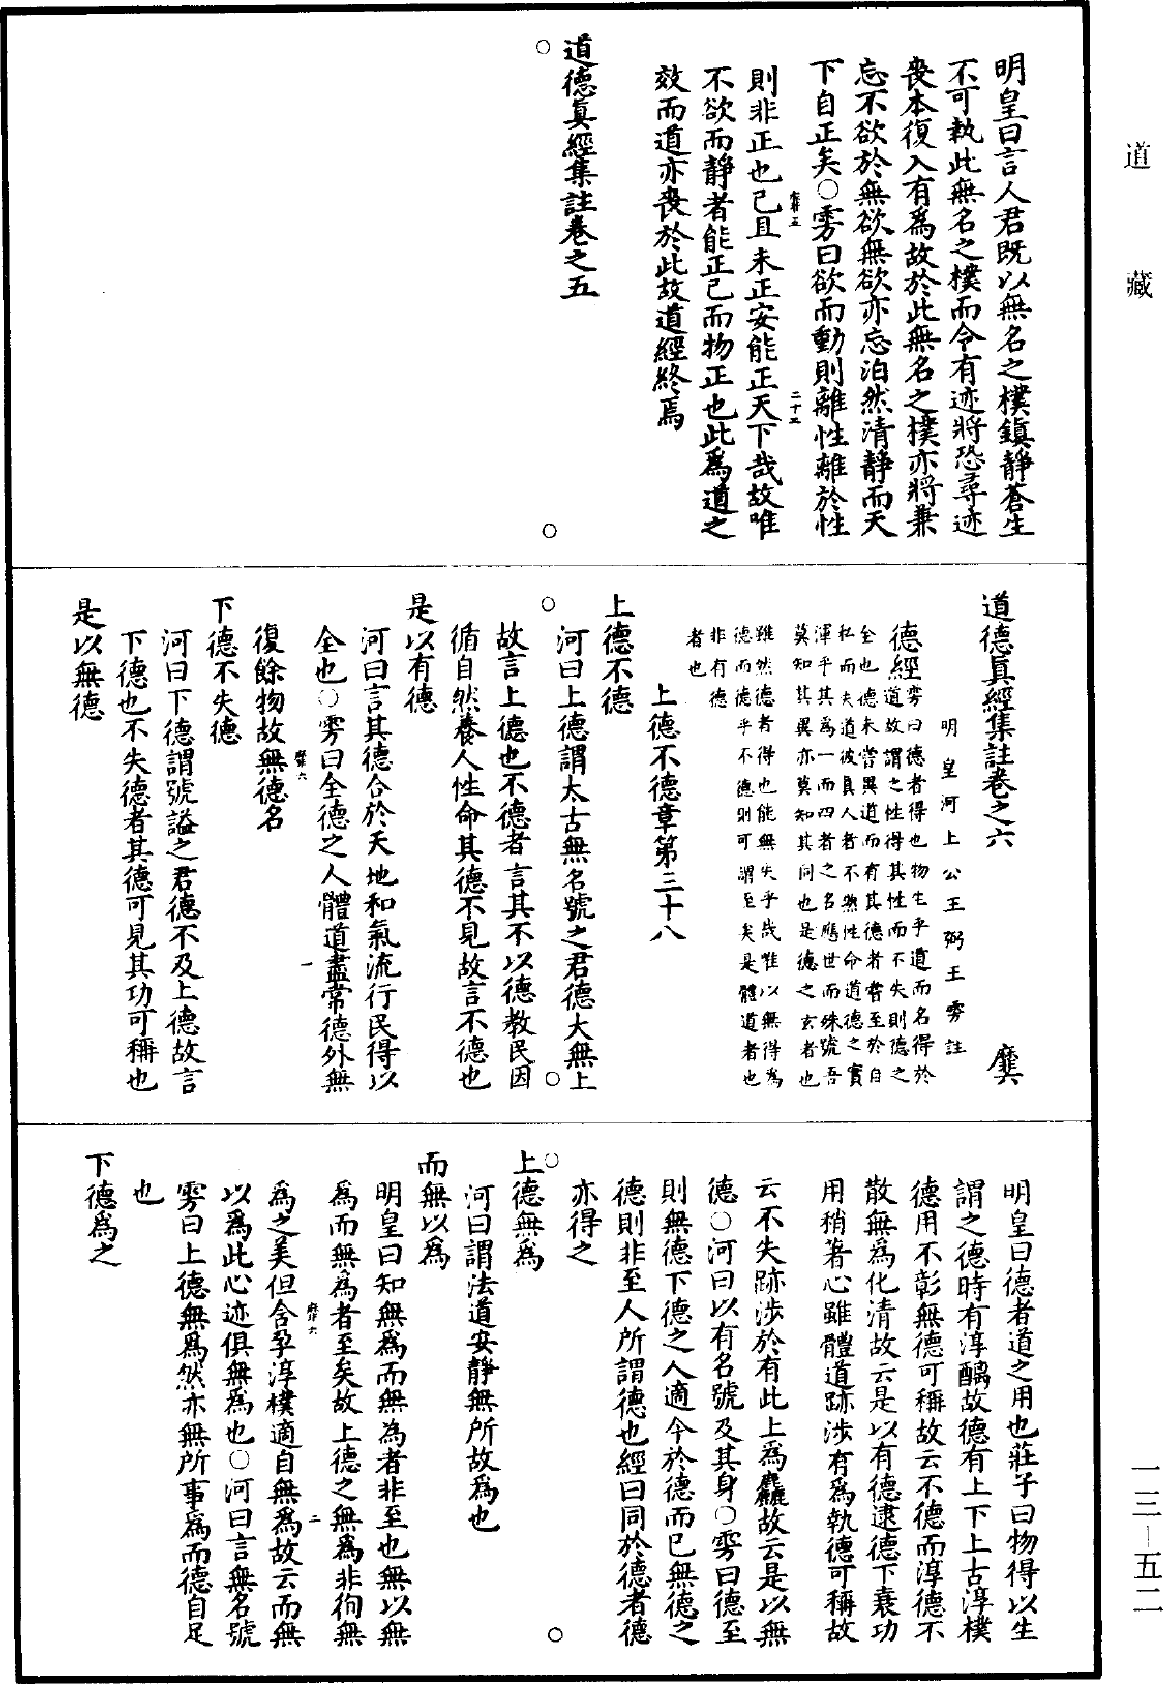 道藏
明皇曰言人君既以無名之樸鎮靜蒼生
不可執此無名之樸而令有迹將恐尋迹
喪本復入有爲故於此無名之樸亦將兼
忘不欲於無欲無欲亦忘泊然清靜而天
下自正矣○雱曰欲而動則離性離於性
則非正也己且未正安能正天下哉故唯
不欲而靜者能正己而物正也此爲道之
效而道亦喪於此故道經終焉
道德眞經集註卷之五
道德眞經集註卷之六 靡六
明皇河上公王弼王雱註
德經
雱曰德者得也物生乎道而名得於
道故謂之性得其性而不失則德之
全也德未嘗異道而有其德者嘗至於自
私而失道彼眞人者不然性命道德之實
渾乎其爲一而四者之名應世而殊號吾
莫知其異亦莫知其同也是德之玄者也
雖然德者得也能無失乎哉唯以無得爲
德而德乎不德則可謂至矣是體道者也
非有德
者也
上德不德章第三十八
上德不德
河曰上德謂太古無名號之君德大無上
故言上德也不德者言其不以德教民因
循自然養人性命其德不見故言不德也
是以有德
河曰言其德合於天地和氣流行民得以
全也○雱曰全德之人體道盡常德外無
復餘物故無德名
下德不失德
河曰下德謂號謚之君德不及上德故言
下德也不失德者其德可見其功可稱也
是以無德
明皇曰德者道之用也莊子曰物得以生
謂之德時有淳醨故德有上下上古淳樸
德用不彰無德可稱故云不德而淳德不
散無爲化清故云是以有德逮德下衰功
用稍著心雖體道跡涉有爲執德可稱故
云不失跡涉於有此上爲麤故云是以無
德○河曰以有名號及其身○雱曰德至
則無德下德之人適今於德而已無德之
德則非至人所謂德也經曰同於德者德
亦得之
上德無爲
河曰謂法道安靜無所故爲也
而無以爲
明皇曰知無爲而無為者非至也無以無
爲而無爲者至矣故上德之無爲非徇無
爲之美但含孕淳樸適自無爲故云而無
以爲此心迹俱無爲也○河曰言無名號
雱曰上德無爲然亦無所事爲而德自足
也
下德爲之
一三—五二